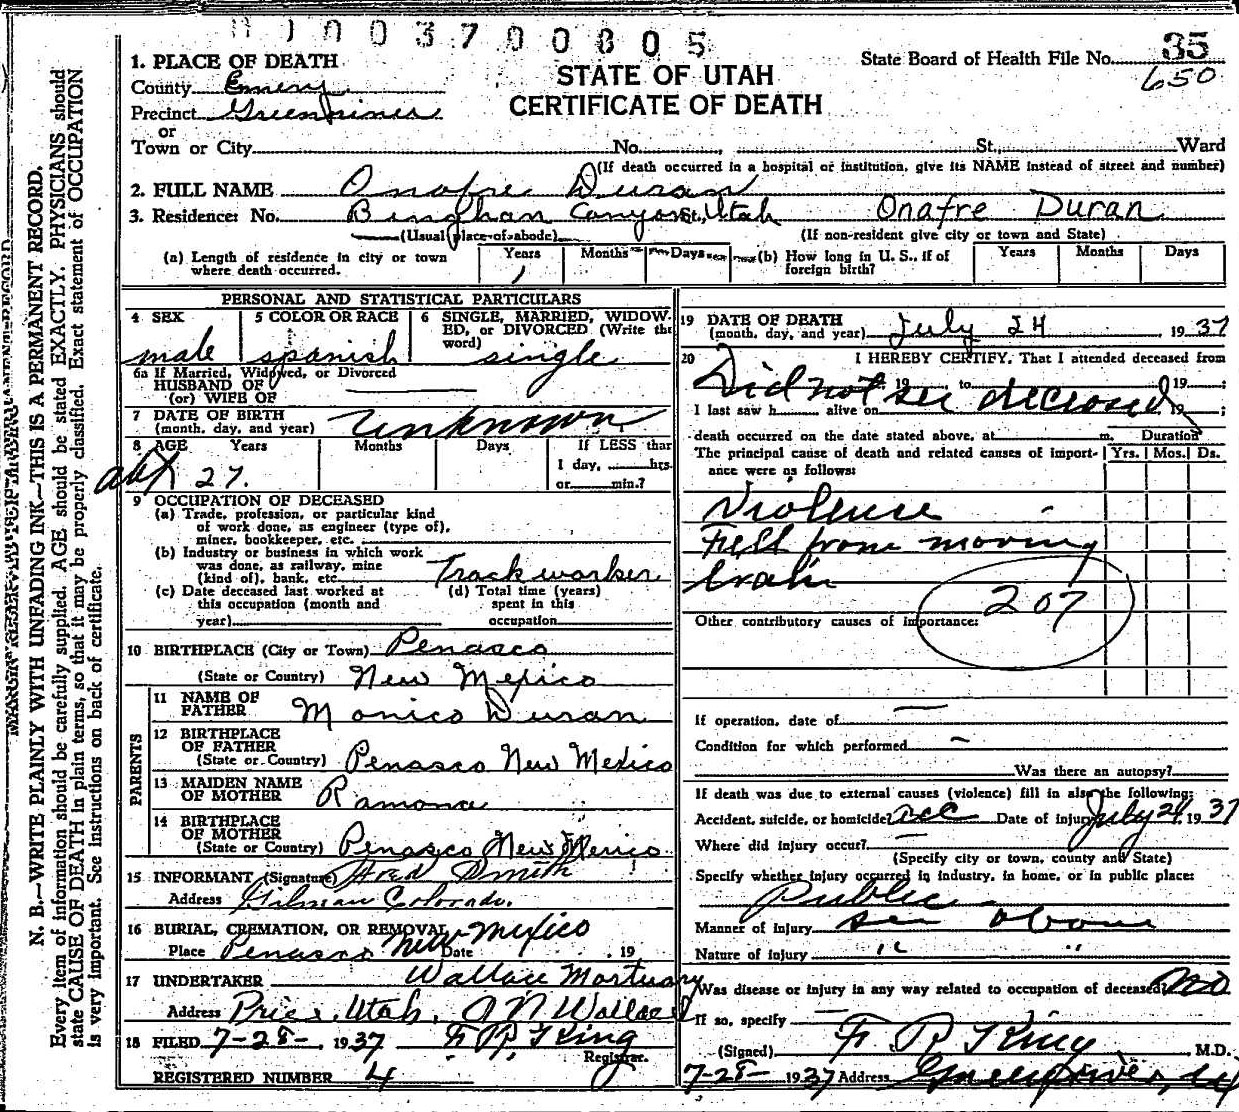 1003700805
35
State Board of Health File No.
650
1. PLACE OF DEATH
STATE OF UTAH
CERTIFICATE OF DEATH
County Emery
Precinct Greenriver
or
Town or City No. St. Ward
(If death occurred in a hospital or institution, give its NAME instead of street and number)
2. FULL NAME Onofre Duran
3. Residence: No. Bingham Canyon St., Utah Onafre Duran
(Usual place of abode) (If non-resident give city or town and State)
(a) Length of residence in city or town where death occurred. Years 1 Months Days (b) How long in U. S., if of foreign birth? Years Months Days
PERSONAL AND STATISTICAL PARTICULARS
4 SEX male
5 COLOR OR RACE spanish
6 SINGLE, MARRIED, WIDOWED, or DIVORCED (Write the word) single
6a If Married, Widowed, or Divorced
HUSBAND OF
(or) WIFE OF
7 DATE OF BIRTH
(month, day, and year) unknown
8 AGE Years Months Days If LESS than
1 day, hrs.
or min.?
abt 27.
9 OCCUPATION OF DECEASED
(a) Trade, profession, or particular kind
of work done, as engineer (type of),
miner, bookkeeper, etc.
(b) Industry or business in which work
was done, as railway, mine
(kind of), bank, etc. Track worker
(c) Date deceased last worked at
this occupation (month and
year)
(d) Total time (years)
spent in this
occupation
10 BIRTHPLACE (City or Town) Penasco
(State or Country) New Mexico
PARENTS
11 NAME OF
FATHER Monico Duran
12 BIRTHPLACE
OF FATHER
(State or Country) Penasco New Mexico
13 MAIDEN NAME
OF MOTHER Ramona
14 BIRTHPLACE
OF MOTHER
(State or Country) Penasco New Mexico
15 INFORMANT (Signature) Fred Smith
Address Gilman Colorado.
16 BURIAL, CREMATION, OR REMOVAL
Place Penasco New Mexico Date 19
17 UNDERTAKER Wallace Mortuary
Address Price, Utah. A N Wallace
18 FILED 7-28- 1937 F R King
Registrar.
REGISTERED NUMBER 4
19 DATE OF DEATH
(month, day, and year) July 24 1937
20 I HEREBY CERTIFY, That I attended deceased from
19 to 19 ;
Did not see deceased
I last saw h alive on 19 ;
death occurred on the date stated above, at m. Duration
The principal cause of death and related causes of importance were as follows: Yrs. Mos. Ds.
Violence
Fell from moving
train
207
Other contributory causes of importance:
If operation, date of —
Condition for which performed —
Was there an autopsy?
If death was due to external causes (violence) fill in also the following:
Accident, suicide, or homicide acc Date of injury July 24 1937
Where did injury occur? —
(Specify city or town, county and State)
Specify whether injury occurred in industry, in home, or in public place:
Public
Manner of injury see above
Nature of injury " "
Was disease or injury in any way related to occupation of deceased? No
If so, specify —
(Signed) F R King M.D.
7-28- 1937 Address Greenriver, Ut
N. B.—WRITE PLAINLY WITH UNFADING INK—THIS IS A PERMANENT RECORD.
Every item of information should be carefully supplied. AGE should be stated EXACTLY. PHYSICIANS should
state CAUSE OF DEATH in plain terms, so that it may be properly classified. Exact statement of OCCUPATION
is very important. See instructions on back of certificate.